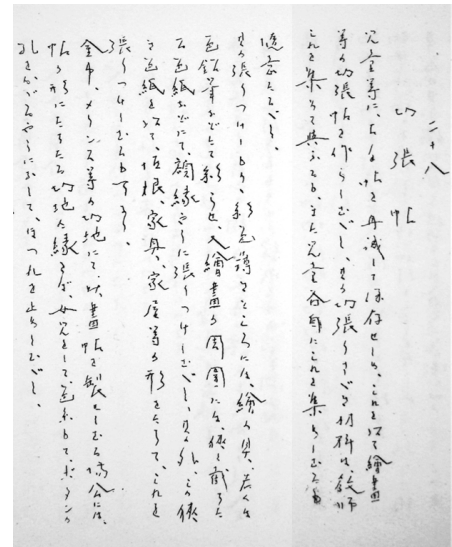 二十八
切張帖
児童等に、して保存せしめ、これを以て繪畫
等の切張帖を作らしむべし、其の切張りすべき材料は、教師
これを集めて與ふるも、また児童各自にこれを集めしむるも
随意なるべし。
其の張りつけし、彩色薄きところには、繪の具、若くは
色鉛筆などにて彩らせ、又繪畫の周圍には、狭く截りた
る色紙などにて、額縁やうに張りつけしむべし、其の外、この狭
き色紙を以て、垣根、家具、家屋等の形をたちて、これを
張りつけしむるもよろし。
金巾、メリンス等の切地にて、此畫帖を製せしむる場合には、
帖の形にたちたる切地の縁をば、女児をして、色糸もて、ボタンの
孔をかがるやうに、ほつれを止めしむべし。